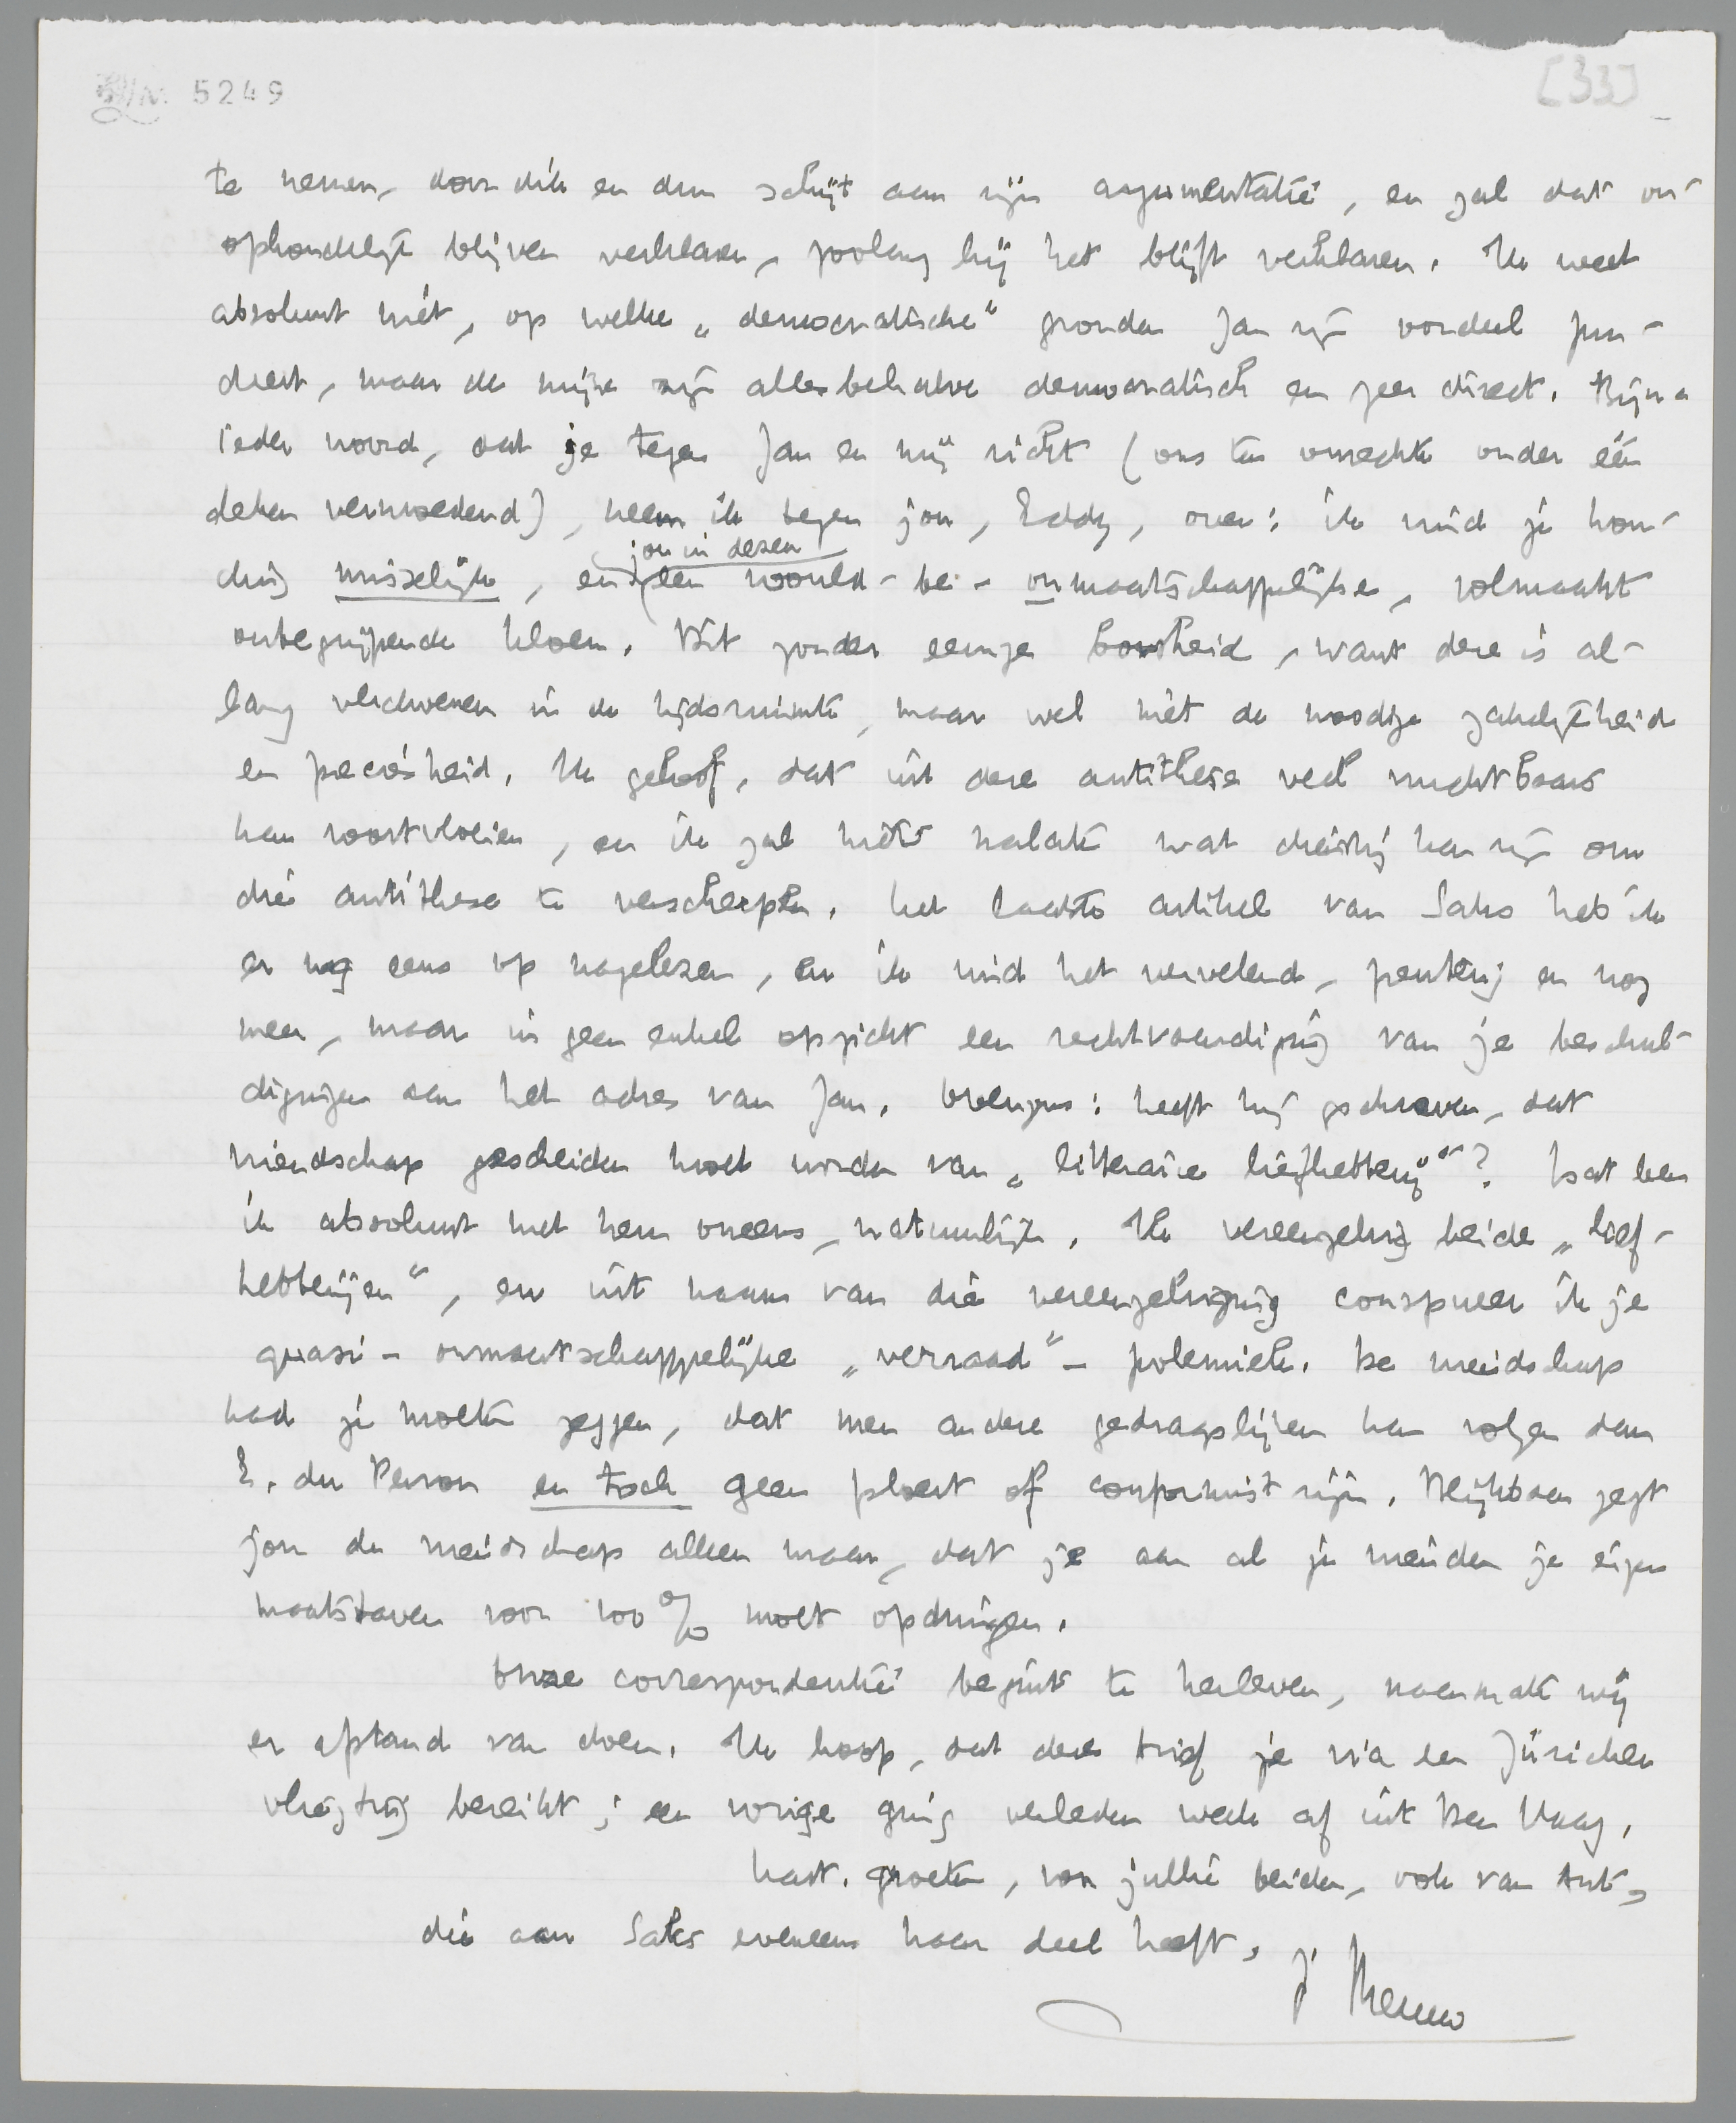 5249
[33]
te nemen, door dik en dun schijt aan zijn argumentatie, en zal dat on-
ophoudelijk blijven verklaren, zoolang hij het blijft verklaren. Ik weet
absoluut niet, op welke „democratische" gronden Jan zijn oordeel fun-
deert, maar de mijne zijn allesbehalve democratisch en zeer direct. Bijna
ieder woord, dat je tegen Jan en mij richt (ons ten onrechte onder één
deken vermoedend), neem ik tegen jou, Eddy, over: ik vind je hou-
ding misselijk, en jou in dezen een would-be-onmaatschappelijke, volmaakt
onbegrijpende kloen. Dit zonder eenige boosheid, want deze is al-
lang verdwenen in de tijdsruimte, maar wel met de noodige zakelijkheid
en preciesheid. Ik geloof, dat uit deze antithese veel vruchtbaars
kan voortvloeien, en ik zal niet nalaten wat dienstig kan zijn om
die antithese te verscherpen. Het laatste artikel van Saks heb ik
er nog eens op nagelezen, en ik vind het vervelend, penterig en nog
meer, maar in geen enkel opzicht een rechtvaardiging van je beschul-
digingen aan het adres van Jan. Overigens: heeft hij geschreven, dat
vriendschap gescheiden moet worden van „litteraire liefhebberij"? Dat ben
ik absoluut met hem oneens, natuurlijk. Ik vereenzelvig beide „lief-
hebberijen", en uit naam van die vereenzelviging conspueer ik je
quasi-onmaatschappelijke „verraad"-polemiek. De vriendschap
had je moeten zeggen, dat men andere gedragslijnen kan volgen dan
E. du Perron en toch geen ploert of conformist zijn. Blijkbaar zegt
jou de vriendschap alleen maar, dat je aan al je vrienden je eigen
maatstaven voor 100% moet opdringen.
Onze correspondentie begint te herleven, naarmate wij
er afstand van doen. Ik hoop, dat deze brief je via een Züricher
vliegtuig bereikt; een vorige ging verleden week af uit Den Haag.
Hart. groeten, voor jullie beiden, ook van Ant,
die aan Saks eveneens haar deel heeft,
je Menno